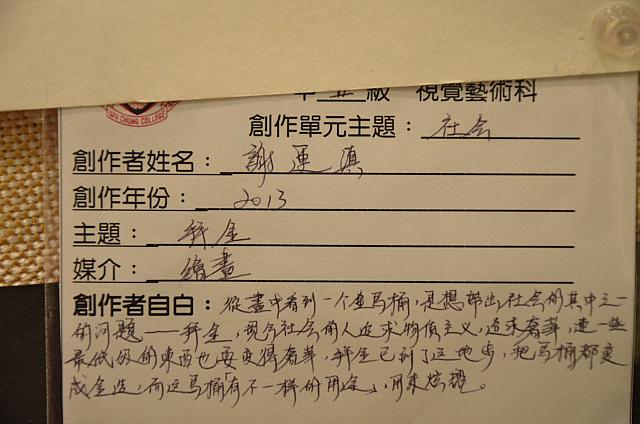 WU CHUNG COLLEGE
年 五 級 視覺藝術科
創作單元主題：社会
創作者姓名：謝運真
創作年份：2013
主題：拜金
媒介：繪畫
創作者自白：從畫中看到一个金馬桶，是想帶出社会的其中之一
的问題——拜金，現今社会的人追求物質主义，追求奢華，連一些
最低级的東西也要变得奢華，拜金已到了這地步，把馬桶都變
成金造，而這馬桶「有不一样的用途」，用來炫耀。